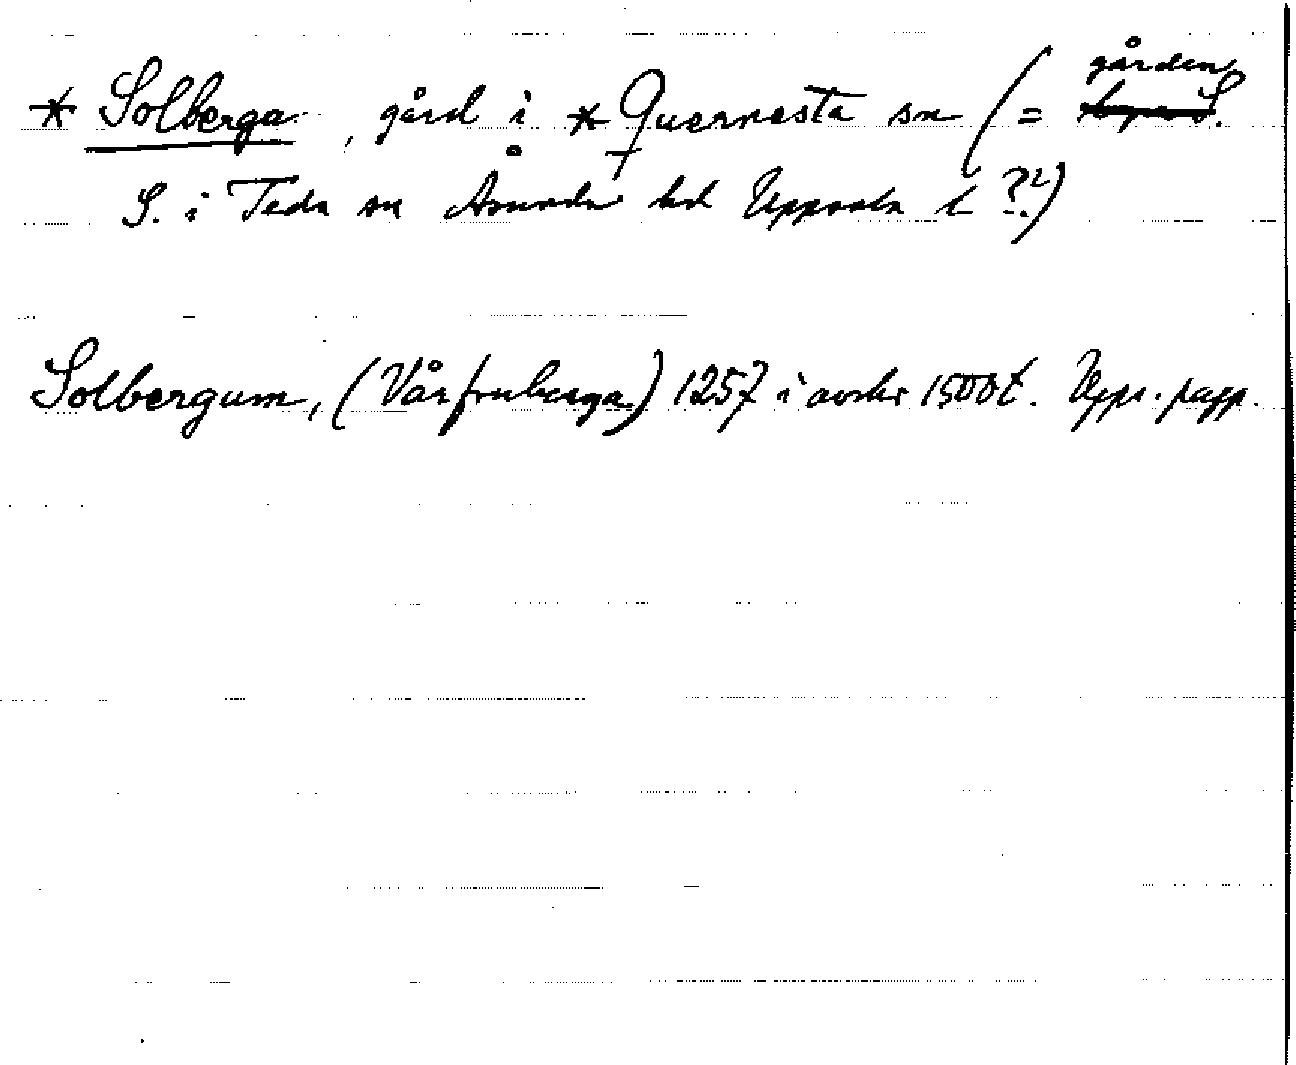 gården
* Solberga, gård i * Quernesta sn (= S.
S. i Teda sn Åsunda hd Uppsala l ??)
Solbergum, (Vårfruberga) 1257 i avskr 1500t. Upps. papp.